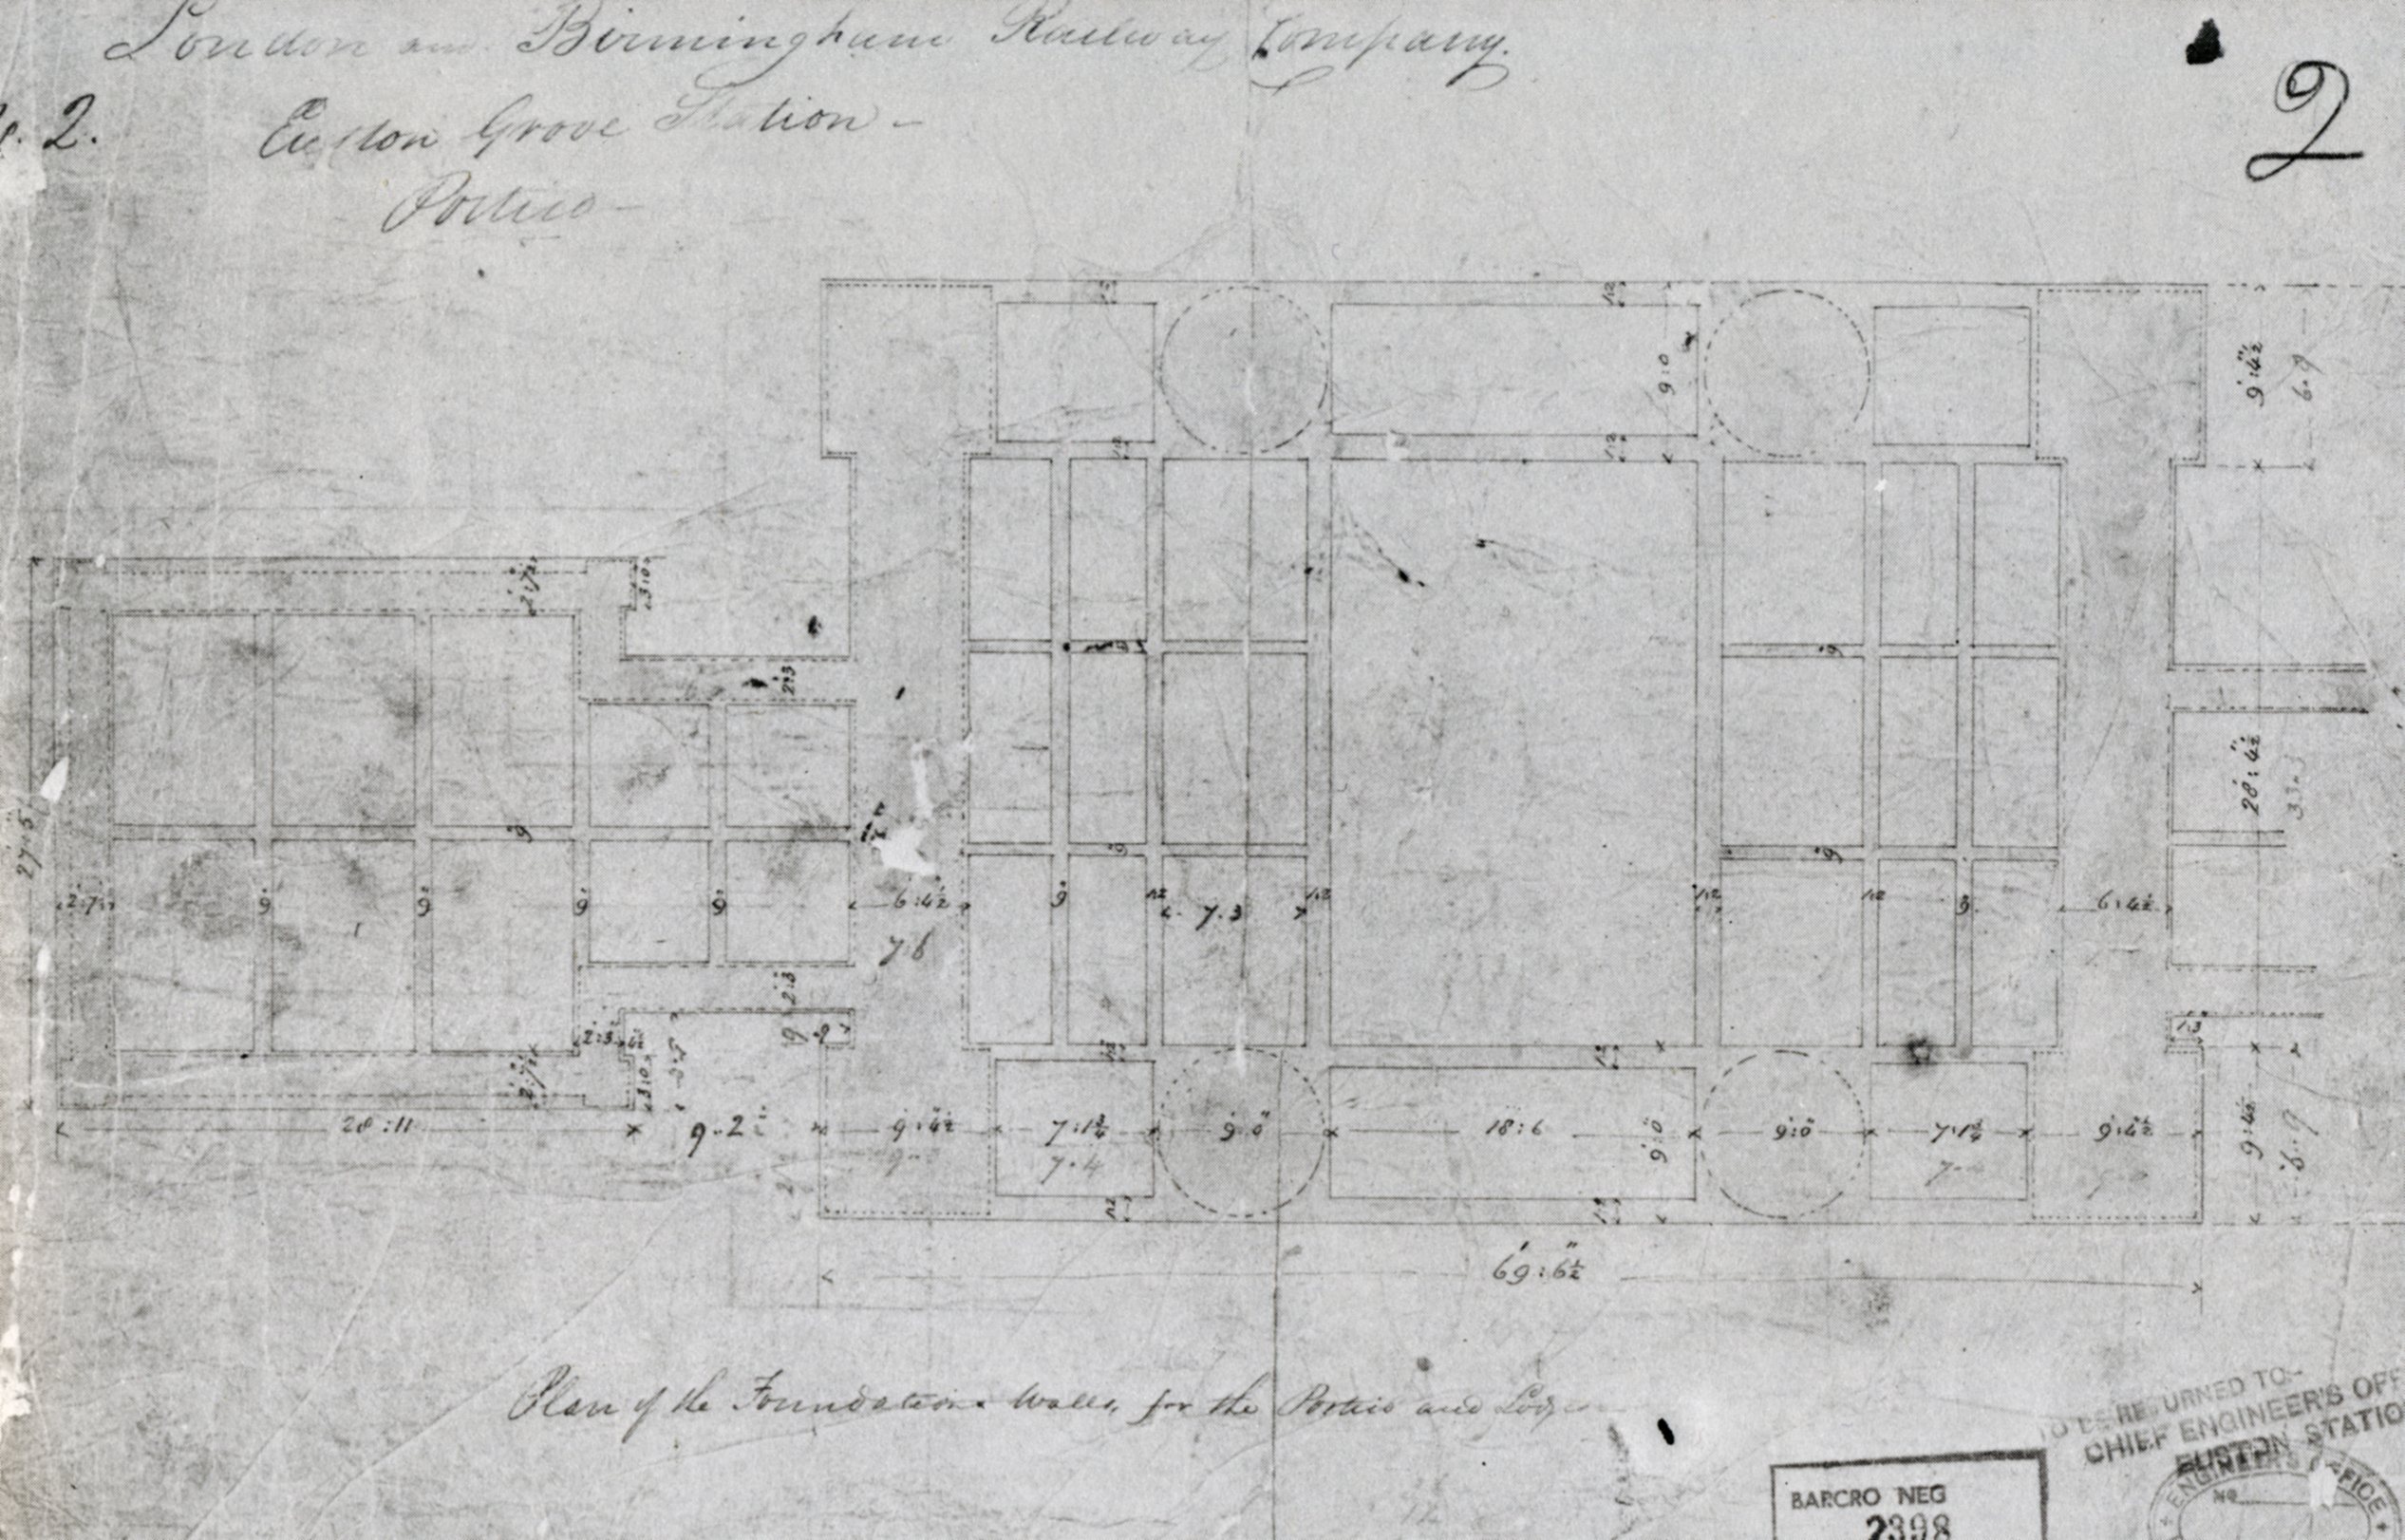 London and Birmingham Railway Company.
2
2.
Euston Grove Station –
Portico –
1:2
1:2
9:0
9:4½
6.9
1:2
1:2
2:7½
3:0
2:3
9
9
28:4½
33.3
27:5
9
9
9
2:7
9
9
9
9
6:4½
9
1:2
7.3
1:2
1:2
1:2
9
6:4½
7 6
2:3
2:3
9.2
1:3
2:7½
3:0
1:2
1:2
28:11
9..2
9:4½
7:1¾
9:0
18:6
9:0
9:0
7:1¾
9:4½
9:4½
6.9
7.4
1:2
1:2
69:6½
Plan of the Foundation Walls, for the Portico and
TO BE RETURNED TO:-
CHIEF ENGINEER'S OFF
EUSTON STATIO
ENGINEER'S OFFICE
No
BARCRO NEG
2398